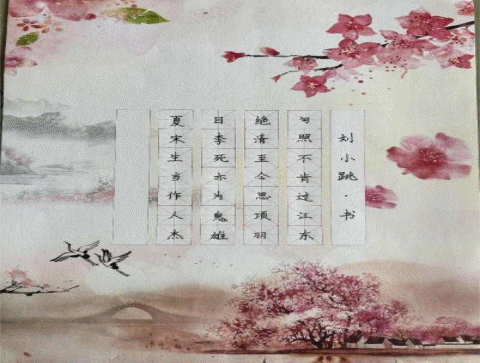 夏日绝句
宋李清照
生当作人杰
死亦为鬼雄
至今思项羽
不肯过江东
刘小跳·书